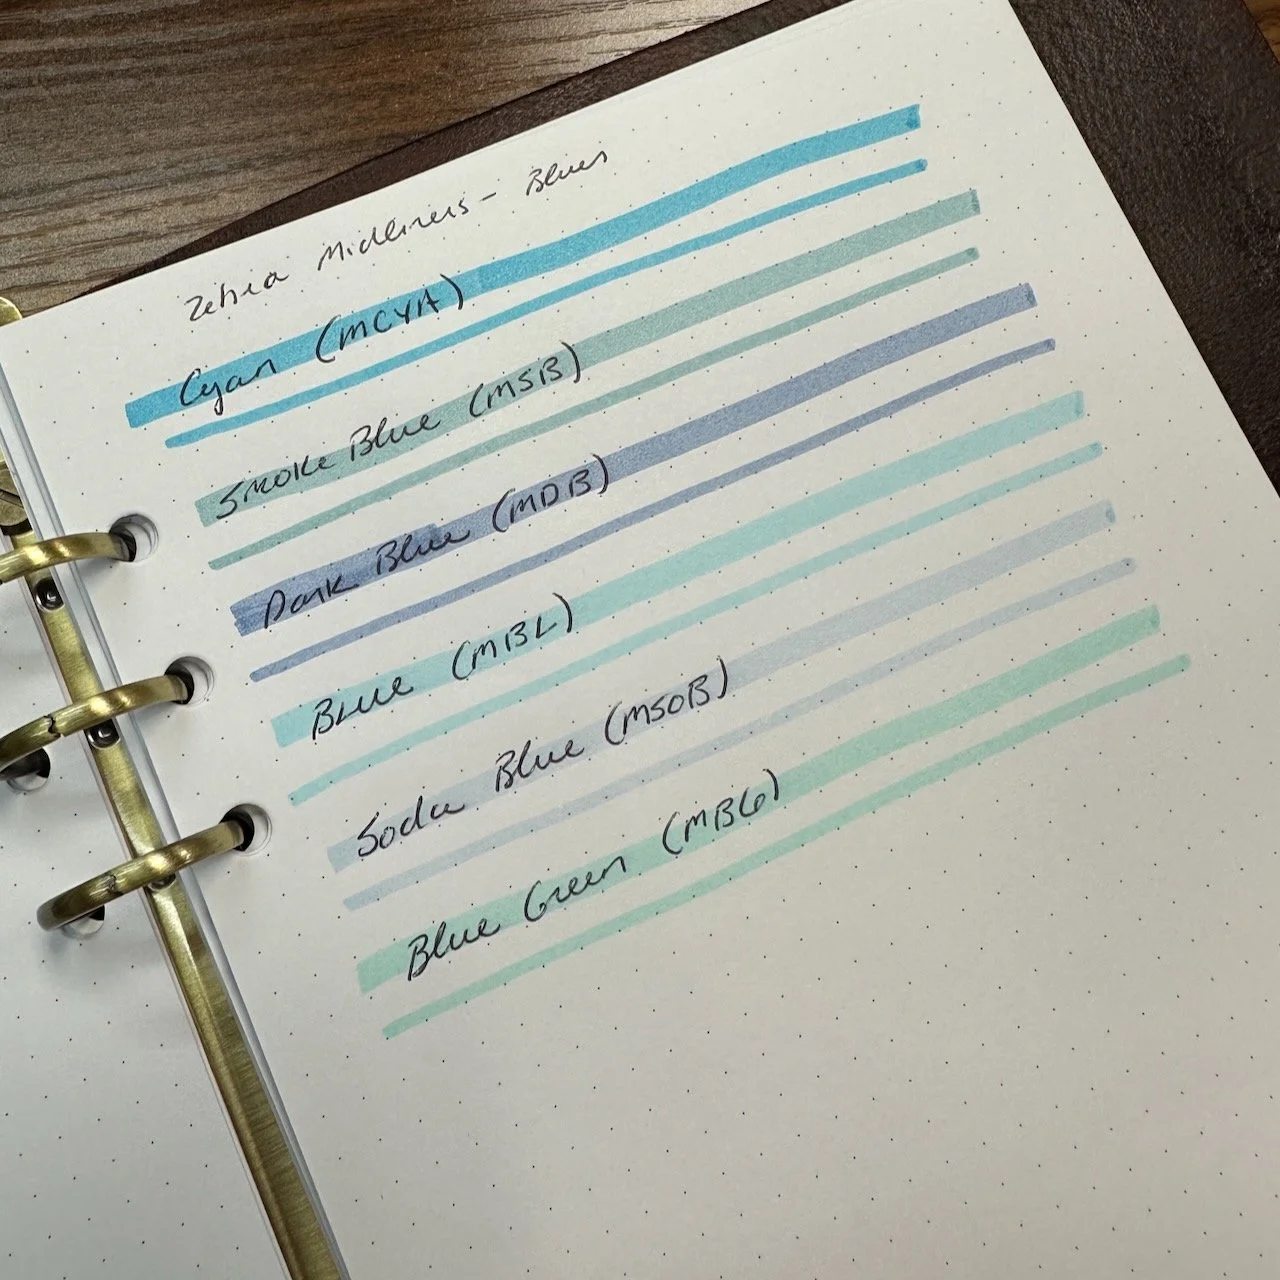 Zebra Midliners - Blues
Cyan (MCYA)
Smoke Blue (MSB)
Dark Blue (MDB)
Blue (MBL)
Soda Blue (MSOB)
Blue Green (MBG)